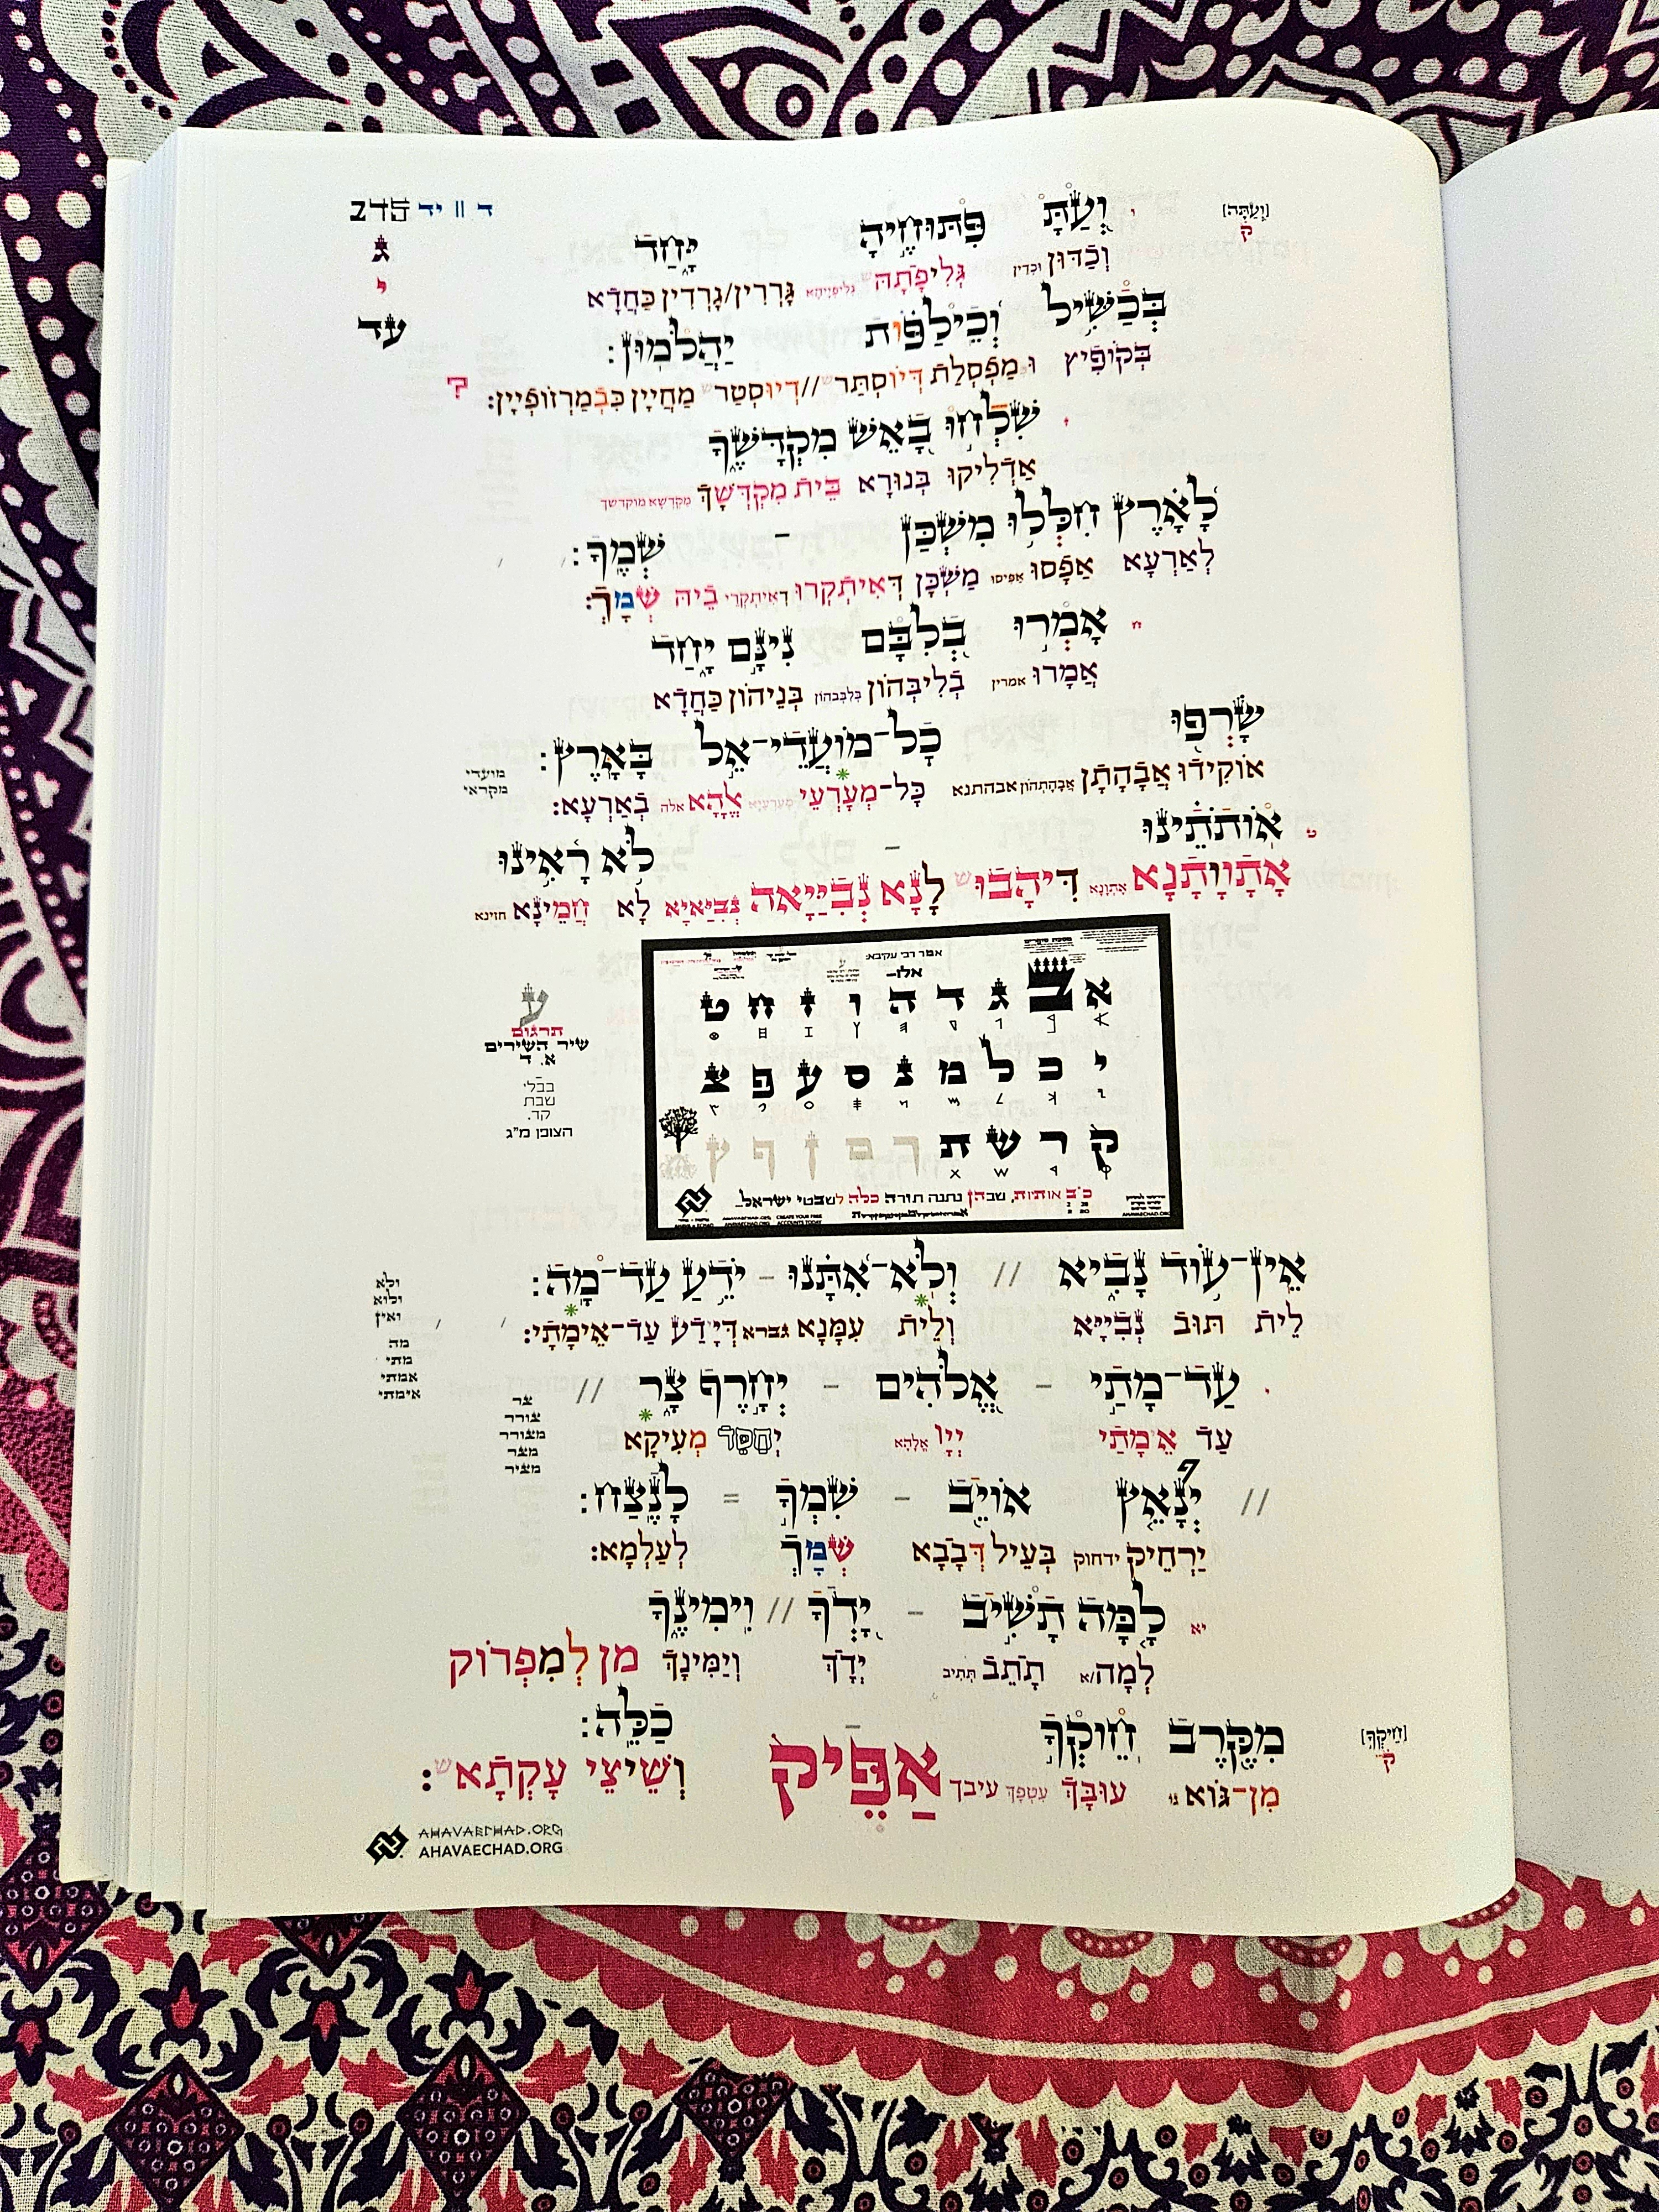 ד || יד
ג
ל
עד
[וְעַתָּה]
ק
ו וְעַתָּ פִּתּוּחֶיהָ יָּחַד
וְכַדּוּן וכדין גְּלִיפָתָהּ גָּרְרִין/גָרְדִין כַּחֲדָא
בְּכַשִּׁיל וְכֵילַפֹּת יַהֲלֹמוּן׃
בְּקוֹפִיץ וּמַפְסְלַת דְּיוֹסְתַּר//דְיוּסְטַר מַחְיָין כִּבְמַרְזוֹפְיָין׃
ז שִׁלְחוּ בָאֵשׁ מִקְדָּשֶׁךָ
אַדְלִיקוּ בְּנוּרָא בֵּית מִקְדְּשָׁךְ מקדשא מוקדשך
לָאָרֶץ חִלְּלוּ מִשְׁכַּן – שְׁמֶךָ׃
לְאַרְעָא אַפָסוּ אפיסו מַשְׁכַּן דְּאִיתְקְרוּ דאיתקרי בֵיהּ שְׁמָךְ׃
ח אָמְרוּ בְלִבָּם נִינָם יָחַד
אֲמָרוּ אמרין בְּלִיבְּהוֹן בלבבהון בְּנֵיהוֹן כַּחֲדָא
שָׂרְפוּ כָל־מוֹעֲדֵי־אֵל בָּאָרֶץ׃
מועדי
מקראי
אוֹקִידוּ אֲבָהָתָן אבהתהון אבהתנא כָּל־מְעָרְעֵי אֱלָהָא אלה בְּאַרְעָא׃
ט אוֹתֹתֵינוּ – לֹא רָאִינוּ
אָתָוָותָנָא אתונא דִּיהָבוּ לָנָא נְבִיַּיאָה נְבִיאַיָּא לָא חֲמֵינָא חזינא
אמר רבי עקיבא:
אלו–
א ב ג ד ה ו ז ח ט
י כ ל מ נ ס ע פ צ
ק ר ש ת ך ם ן ף ץ
כ״ב אותיות, שבהן נתנה תורה כלה לשבטי ישראל.
AHAVAECHAD.ORG
ע
תרגום
שיר השירים
א. ד
בבלי
שבת
קד.
הצופן מ״ג
אֵין־עוֹד נָבִיא // וְלֹא־אִתָּנוּ – יֹדֵעַ עַד־מָה׃
ולא
ולוא
ואין
לֵית תּוּב נְבִיָּיא וְלֵית עִמָּנָא גברא דְּיָדַע עַד־אֵימָתַי׃
מה
מתי
אמתי
אימתי
י עַד־מָתַי – אֱלֹהִים – יְחָרֶף צָר //
צר
צורר
מצורר
מצר
מציר
עַד אֵימָתַי יְיָ אֱלָהָא יְחַסֵּד מְעִיקָא
// יְנָאֵץ אוֹיֵב – שִׁמְךָ = לָנֶצַח׃
יַרְחֵיק ידחוק בְּעֵיל דְּבָבָא שְׁמָךְ לְעַלְמָא׃
יא לָמָּה תָשִׁיב – יָדְךָ // וִימִינֶךָ
לְמָה/א תָּתֵב תתיב יְדָךְ וְיַמִּינָךְ מִן לְמִפְרוֹק
מִקֶּרֶב חֵוקְךָ – כַלֵּה׃
[חֵיקְךָ]
ק
מִן־גּוֹא עוּבָּךְ עטפך עיבך אַפֵּיק וְשֵׁיצֵי עָקְתָא׃
AHAVAECHAD.ORG
AHAVAECHAD.ORG